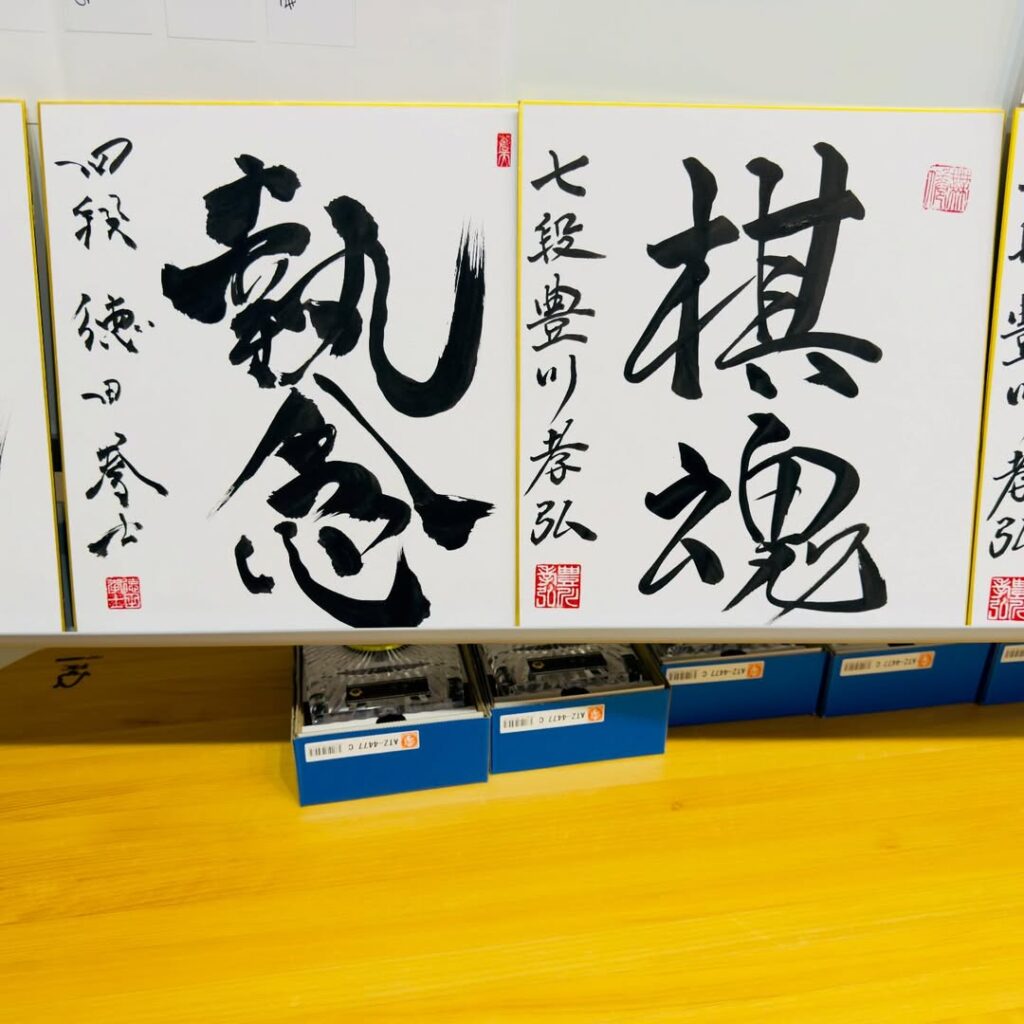 棋魂
七段 豊川孝弘
執念
四段 徳田拳士
ATZ-4477 C
ATZ-4477 C
ATZ-4477 C
ATZ-4477 C